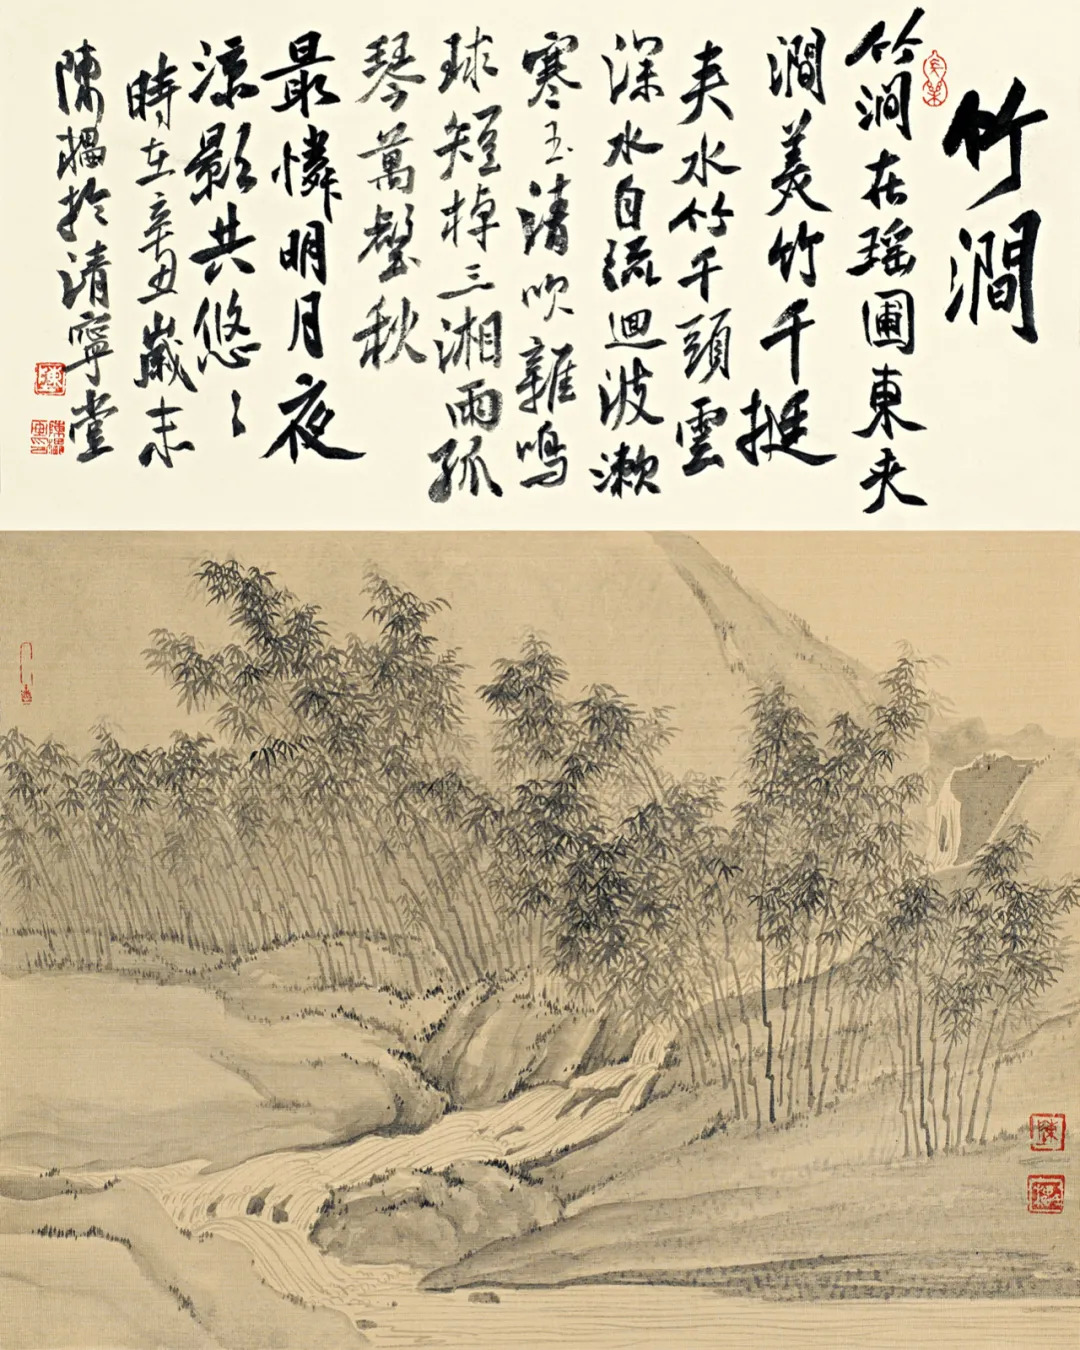 竹澗
竹澗在瑶圃東夾
澗美竹千挺
夾水竹千頭雲
深水自流迴波漱
寒玉清吹雜鳴
球短棹三湘雨孤
琴萬壑秋
最憐明月夜
涼影共悠〻
時在辛丑歲末
陳於清寧堂
陳
陳